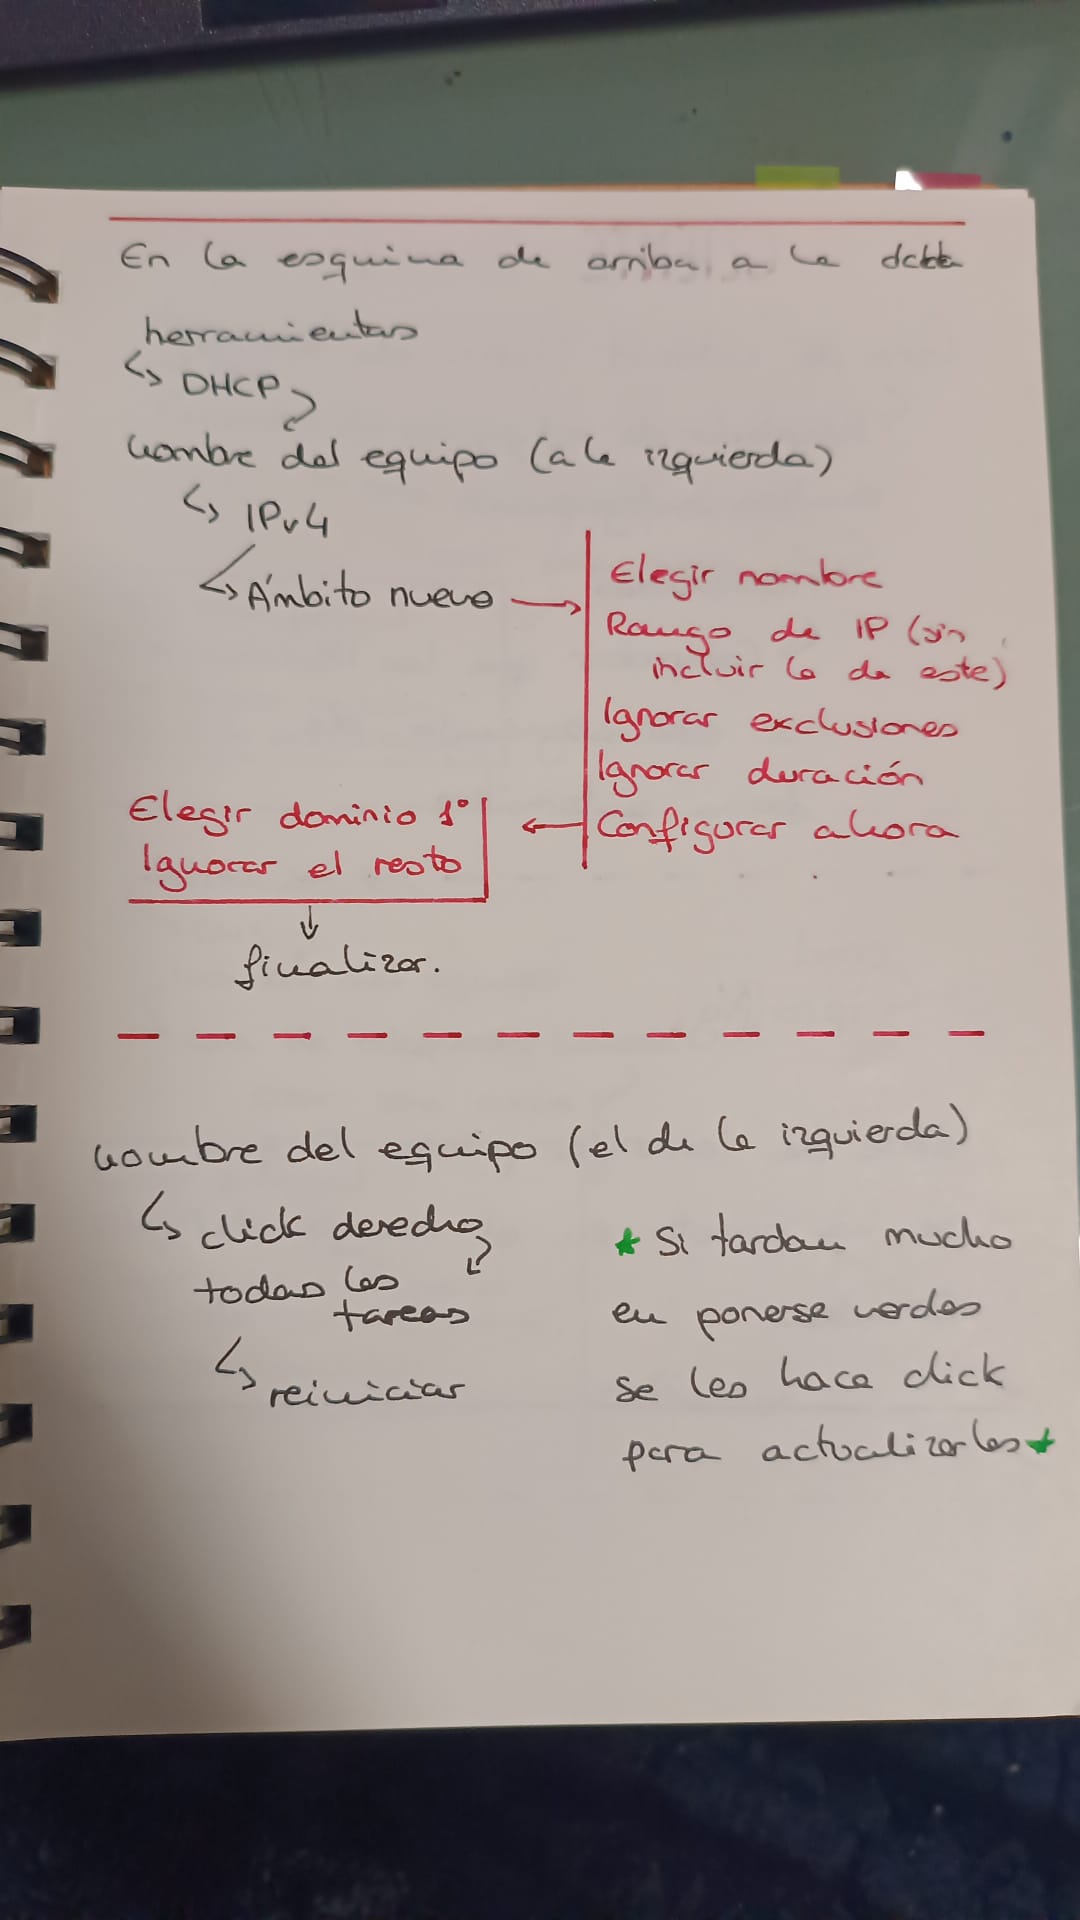 En la esquina de arriba a la dcha
herramientas
↳ DHCP
nombre del equipo (a la izquierda)
↳ IPv4
↳ Ámbito nuevo →
Elegir nombre
Rango de IP (sin
incluir la de este)
Ignorar exclusiones
Ignorar duración
Configurar ahora
Elegir dominio 1º
Ignorar el resto
↓
finalizar.
nombre del equipo (el de la izquierda)
↳ click derecho
todas las
tareas
↳ reiniciar
★ Si tardan mucho
en ponerse verdes
se les hace click
para actualizarlos ★